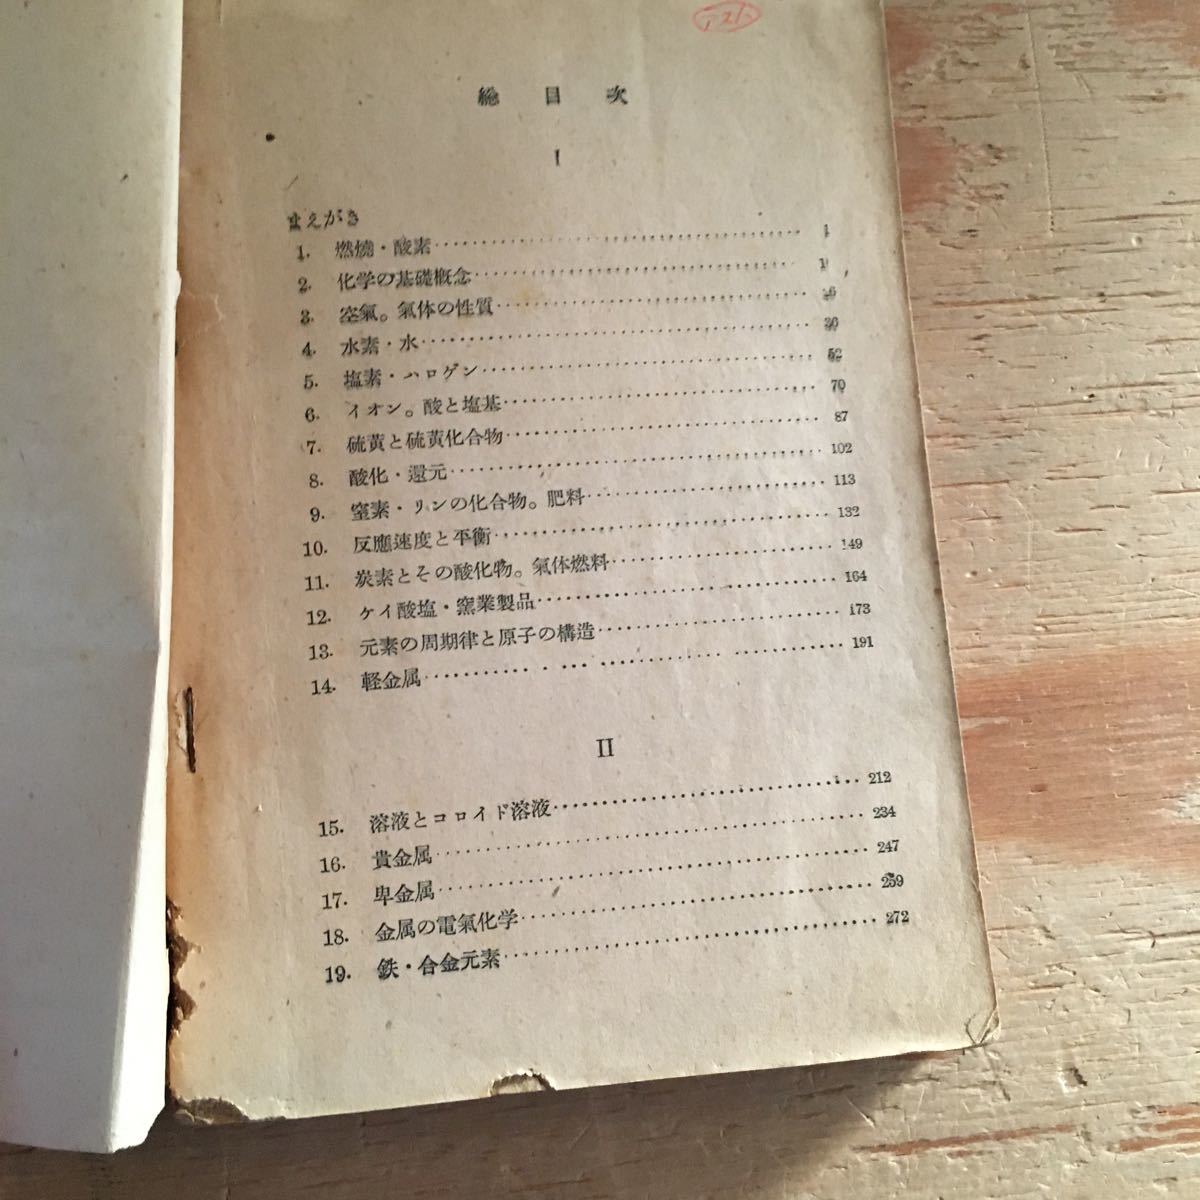 総目次
I
まえがき
1. 燃燒・酸素 1
2. 化学の基礎概念
3. 空氣。氣体の性質
4. 水素・水
5. 塩素・ハロゲン 52
6. イオン。酸と塩基 70
7. 硫黄と硫黄化合物 87
8. 酸化・還元 102
9. 窒素・リンの化合物。肥料 113
10. 反應速度と平衡 132
11. 炭素とその酸化物。氣体燃料 149
12. ケイ酸塩・窯業製品 164
13. 元素の周期律と原子の構造 173
14. 軽金属 191
II
15. 溶液とコロイド溶液 212
16. 貴金属 234
17. 卑金属 247
18. 金属の電氣化学 259
19. 鉄・合金元素 272